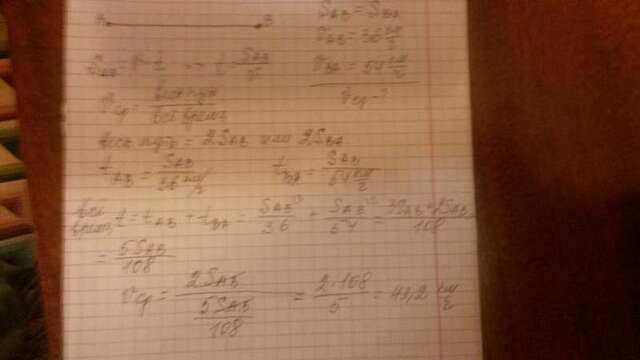 A B
S_AB = S_BA
v_AB = 36 км/ч
v_BA = 54 км/ч
v_ср - ?
t = S_AB / v
v_ср = весь путь / все время
весь путь = 2S_AB или 2S_BA
t_AB = S_AB / 36 км/ч t_BA = S_AB / 54 км/ч
все время t = t_AB + t_BA = S_AB^3 / 36 + S_AB^2 / 54 = 3S_AB + 2S_AB / 108
= 5S_AB / 108
v_ср = 2S_AB / (5S_AB / 108) = 2·108 / 5 = 43,2 км/ч